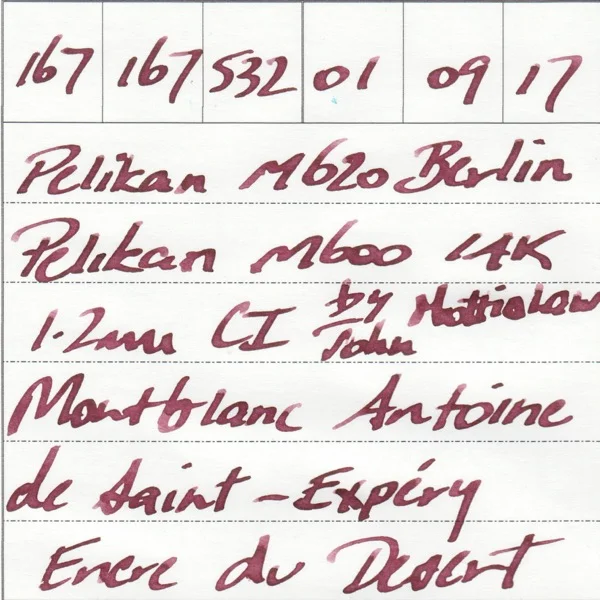 167 167 532 01 09 17
Pelikan M620 Berlin
Pelikan M600 14K
1.2mm CI by John Mottishaw
Montblanc Antoine
de Saint-Expéry
Encre du Desert